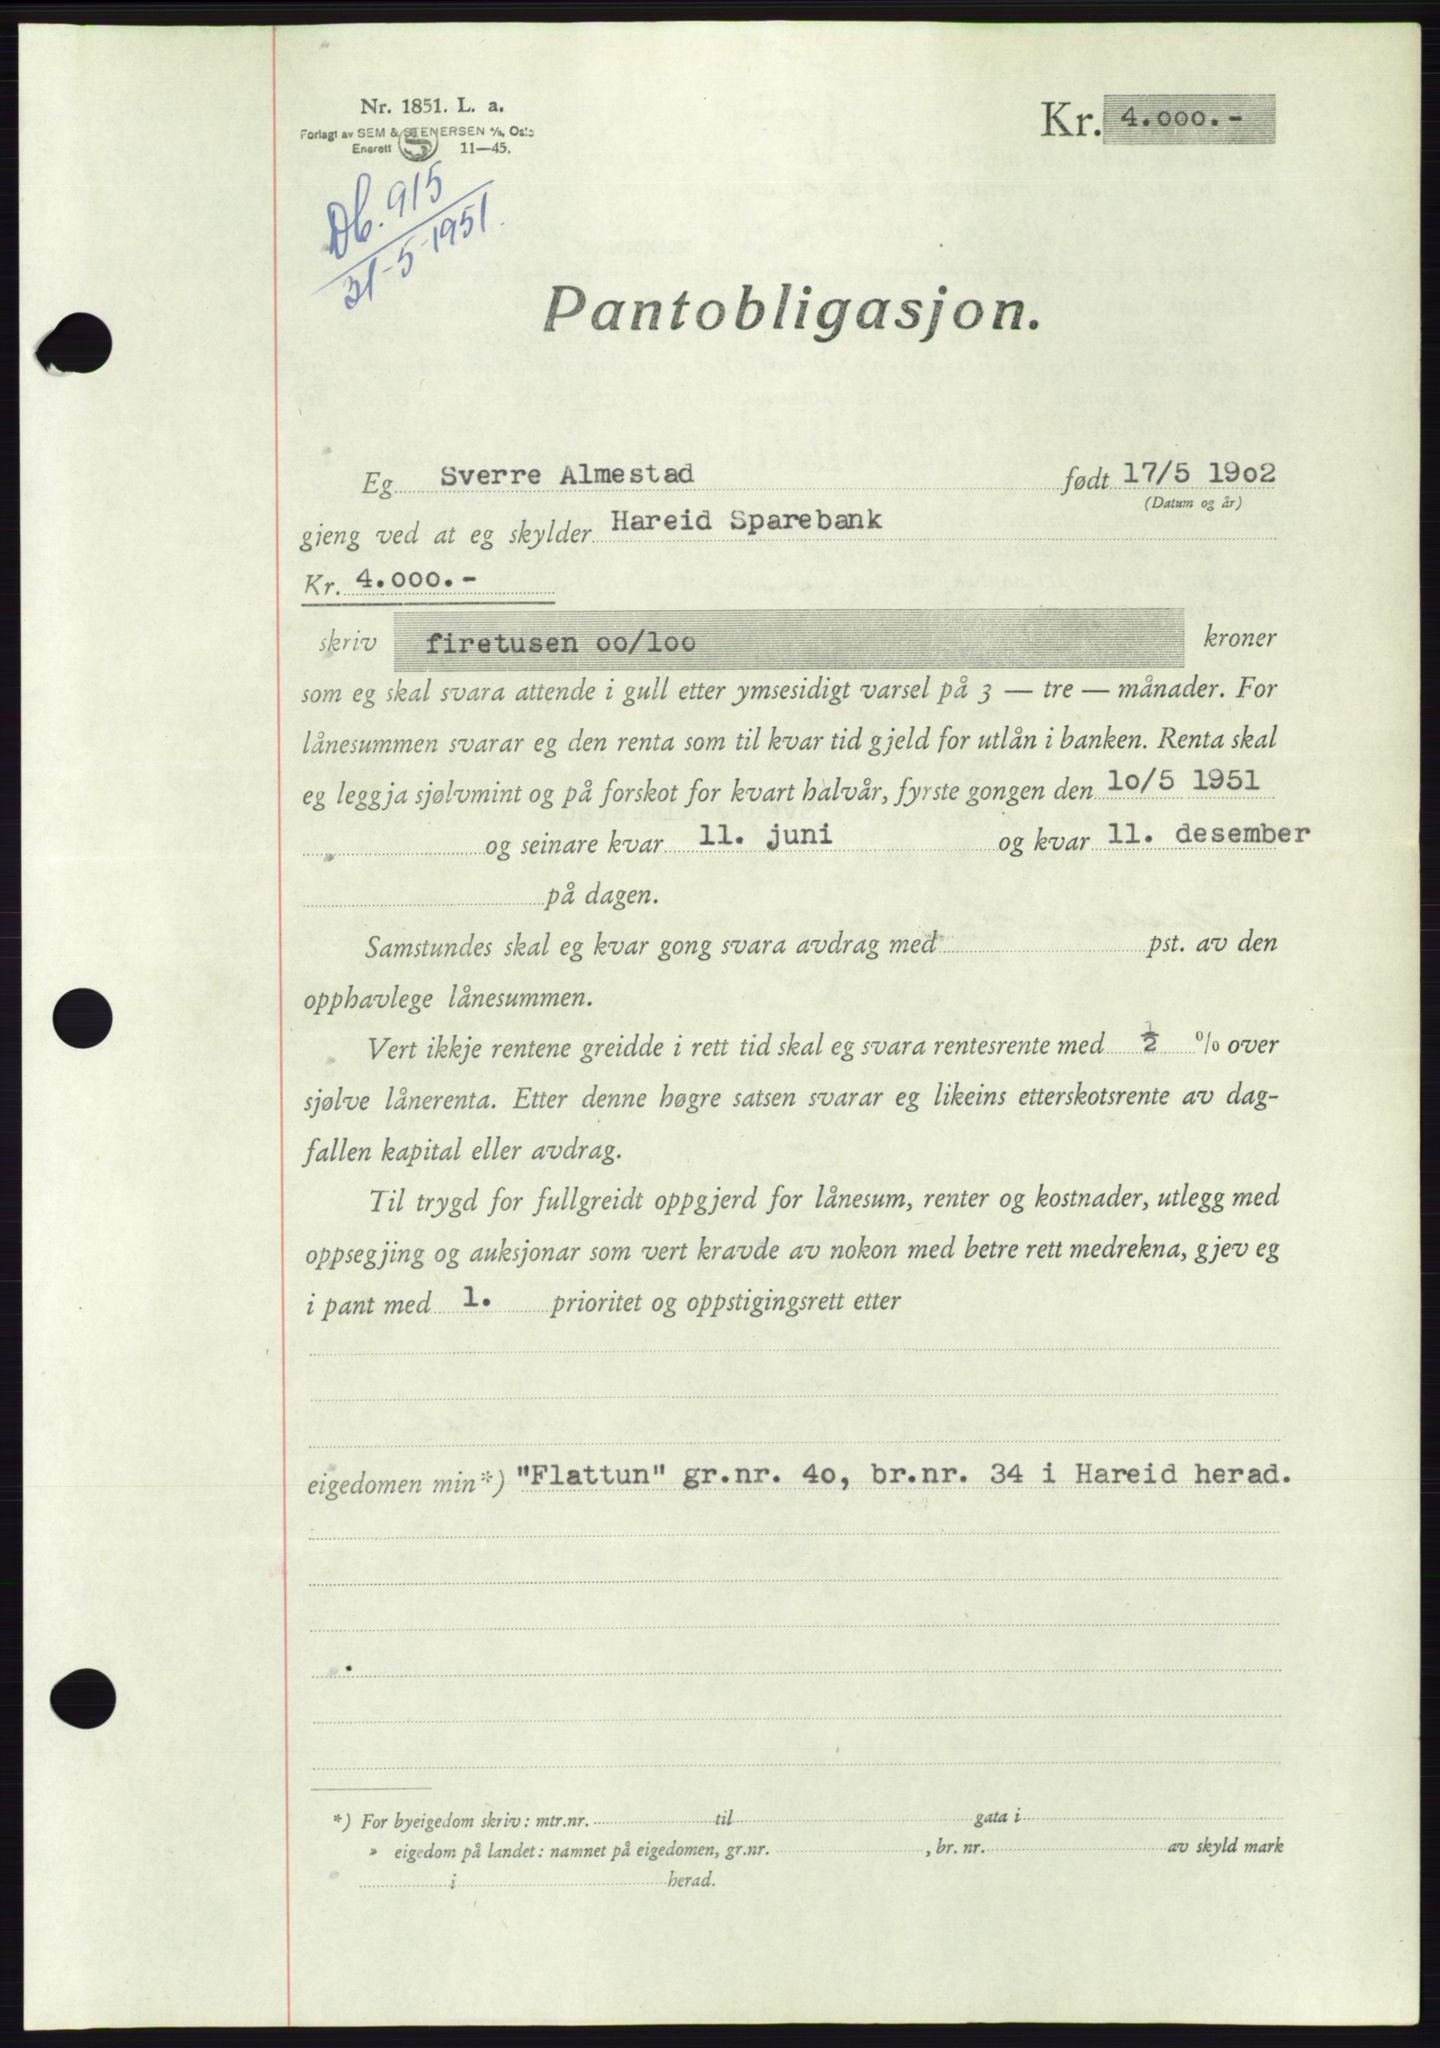 Nr. 1851. L. a.
Forlagt av SEM & STENERSEN A/S, Oslo
Enerett 11—45.
Kr. 4.000.-
Db. 915
31-5-1951.
Pantobligasjon.
Eg Sverre Almestad født 17/5 1902
(Datum og år)
gjeng ved at eg skylder Hareid Sparebank
Kr. 4.000.-
skriv firetusen oo/loo kroner
som eg skal svara attende i gull etter ymsesidigt varsel på 3 — tre — månader. For
lånesummen svarar eg den renta som til kvar tid gjeld for utlån i banken. Renta skal
eg leggja sjølvmint og på forskot for kvart halvår, fyrste gongen den 10/5 1951
og seinare kvar 11. juni og kvar 11. desember
på dagen.
Samstundes skal eg kvar gong svara avdrag med pst. av den
opphavlege lånesummen.
Vert ikkje rentene greidde i rett tid skal eg svara rentesrente med ½ % over
sjølve lånerenta. Etter denne høgre satsen svarar eg likeins etterskotsrente av dag-
fallen kapital eller avdrag.
Til trygd for fullgreidt oppgjerd for lånesum, renter og kostnader, utlegg med
oppsegjing og auksjonar som vert kravde av nokon med betre rett medrekna, gjev eg
i pant med 1. prioritet og oppstigingsrett etter
eigedomen min*) "Flattun" gr.nr. 40, br.nr. 34 i Hareid herad.
*) For byeigedom skriv: mtr.nr. til gata i
» eigedom på landet: namnet på eigedomen, gr.nr. , br. nr. av skyld mark
i herad.